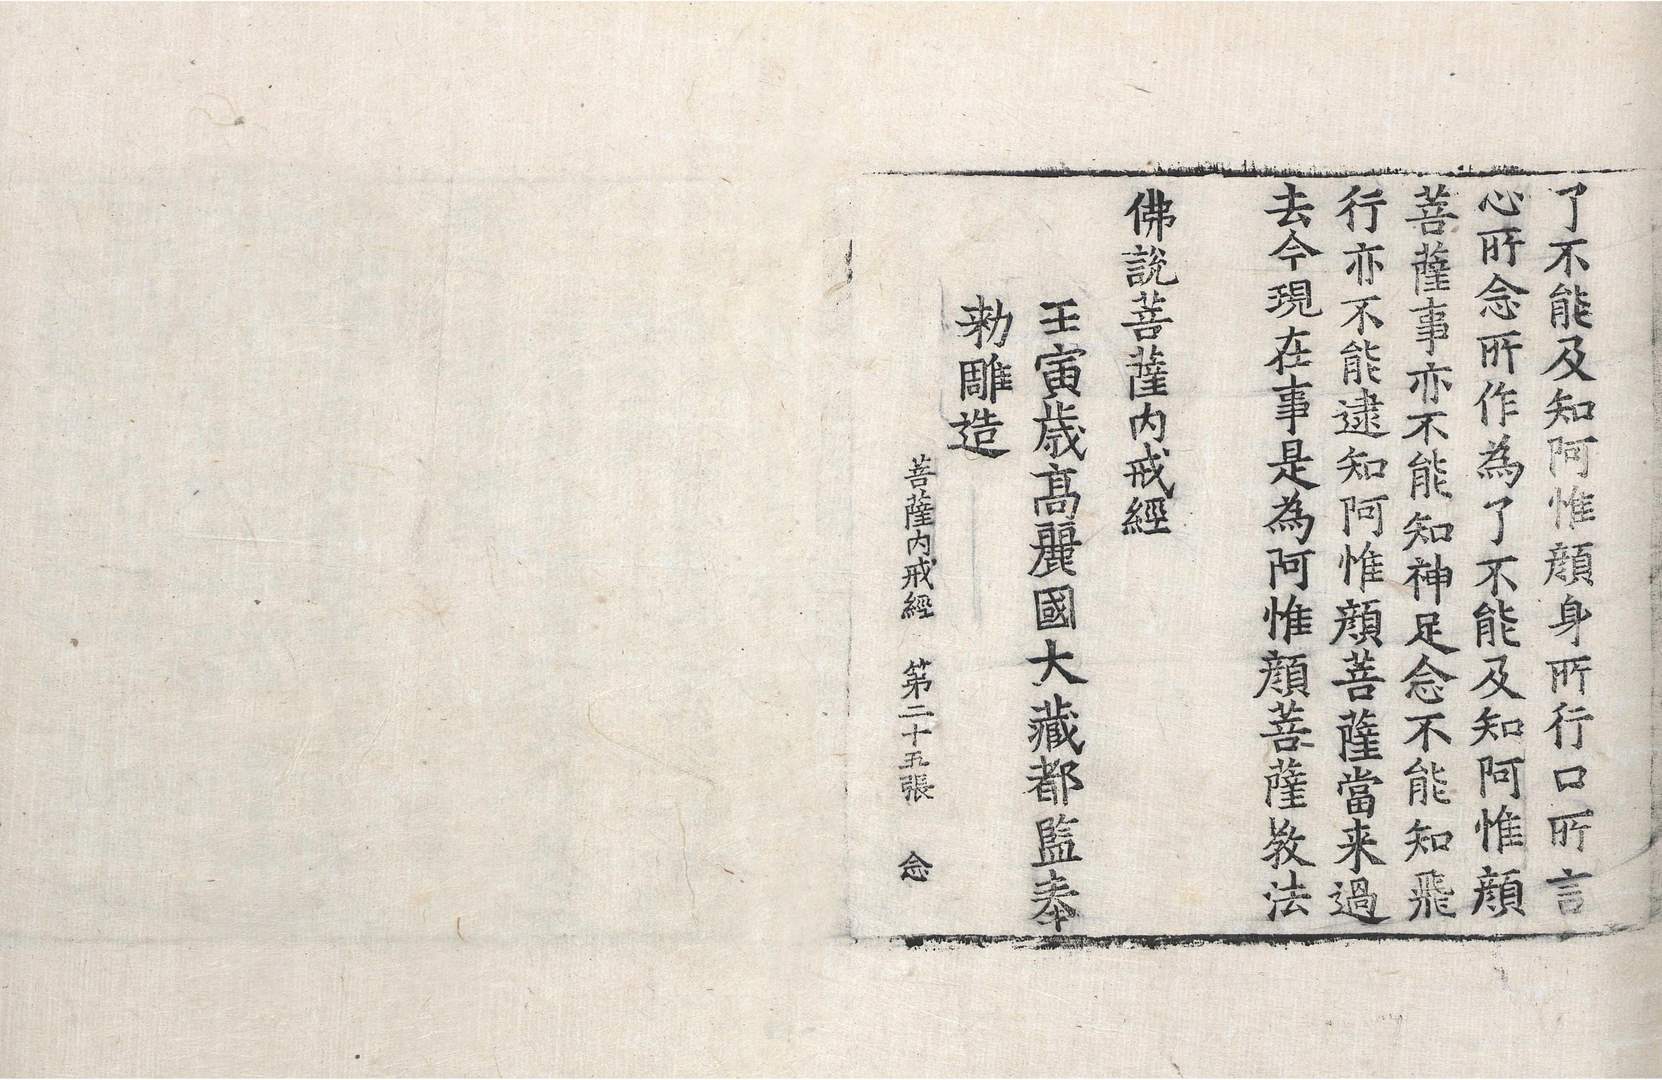 了不能及知阿惟顔身所行口所言
心所念所作為了不能及知阿惟顔
菩薩事亦不能知神足念不能知飛
行亦不能逮知阿惟顔菩薩當来過
去今現在事是為阿惟顔菩薩教法
佛說菩薩內戒經
壬寅歲高麗國大藏都監奉
勑雕造
菩薩內戒經 第二十五張 念